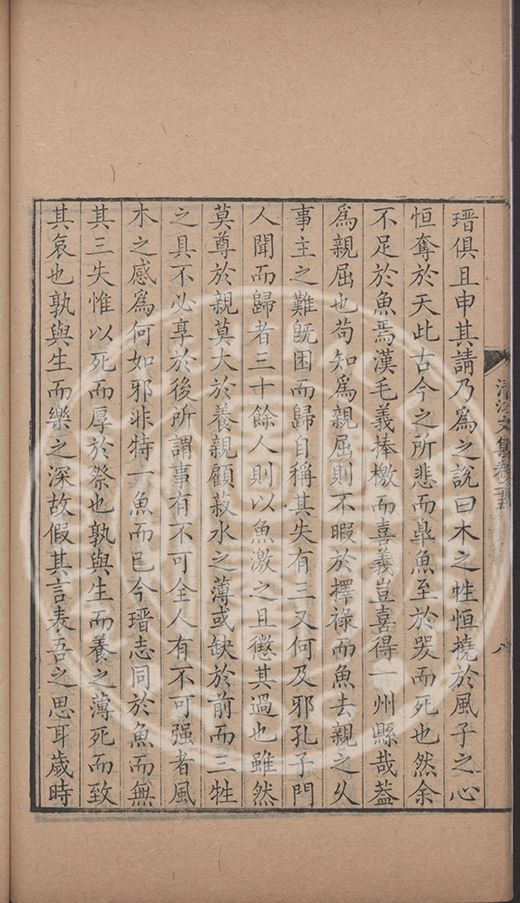 瑨俱且申其請乃爲之說曰木之性恒撓於風子之心
恒奪於天此古今之所悲而臯魚至於哭而死也然余
不足於魚焉漢毛義捧檄而喜義豈喜得一州縣哉葢
爲親屈也苟知爲親屈則不暇於擇祿而魚去親之乆
事主之難旣困而歸自稱其失有三又何及邪孔子門
人聞而歸者三十餘人則以魚激之且懲其過也雖然
莫尊於親莫大於養親顧菽水之薄或缺於前而三牲
之具不必享於後所謂事有不可全人有不可强者風
木之感爲何如邪非特一魚而已今瑨志同於魚而無
其三失惟以死而厚於祭也孰與生而養之薄死而致
其哀也孰與生而樂之深故假其言表吾之思耳歲時
清江文集卷